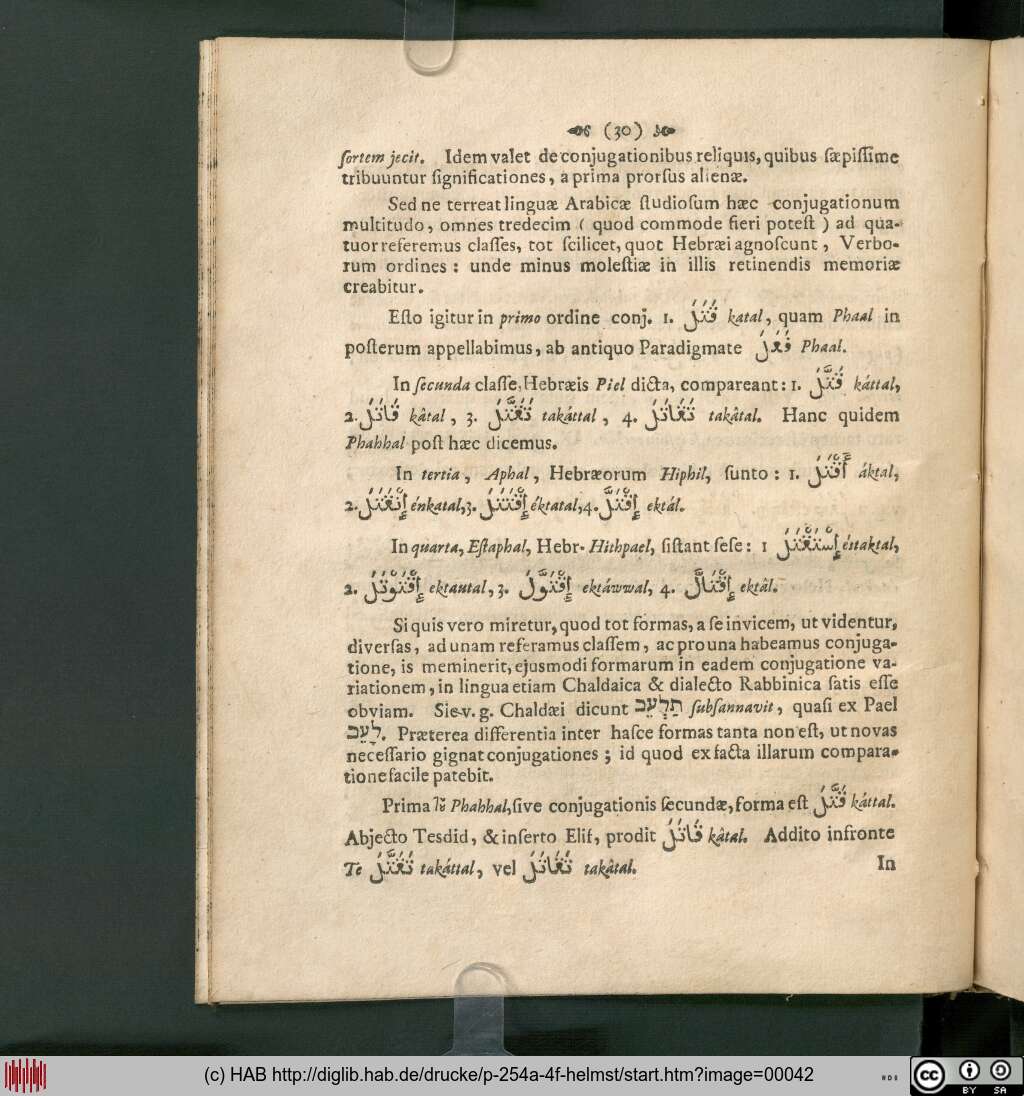 (30)
ſortem jecit. Idem valet de conjugationibus reliquis, quibus ſæpiſſime
tribuuntur ſignificationes, a prima prorſus alienæ.
Sed ne terreat linguæ Arabicæ ſtudioſum hæc conjugationum
multitudo, omnes tredecim ( quod commode fieri poteſt ) ad qua-
tuor referemus claſſes, tot ſcilicet, quot Hebræi agnoſcunt, Verbo-
rum ordines: unde minus moleſtiæ in illis retinendis memoriæ
creabitur.
Eſto igitur in primo ordine conj. 1. قَتَلَ katal, quam Phaal in
poſterum appellabimus, ab antiquo Paradigmate فَعَلَ Phaal.
In ſecunda claſſe, Hebræis Piel dicta, compareant: 1. قَتَّلَ káttal,
2. قَاتَلَ kâtal, 3. تَقَتَّلَ takáttal, 4. تَقَاتَلَ takâtal. Hanc quidem
Phahhal poſt hæc dicemus.
In tertia, Aphal, Hebræorum Hiphil, ſunto: 1. أَقْتَلَ áktal,
2. إِنْقَتَلَ énkatal, 3. إِقْتَتَلَ éktatal, 4. إِقْتَلَّ ektál.
In quarta, Eſtaphal, Hebr. Hithpael, ſiſtant ſeſe: 1 إِسْتَقْتَلَ éſtaktal,
2. إِقْتَوْتَلَ ektautal, 3. إِقْتَوَّلَ ektáwwal, 4. إِقْتَالَّ ektâl.
Si quis vero miretur, quod tot formas, a ſe invicem, ut videntur,
diverſas, ad unam referamus claſſem, ac pro una habeamus conjuga-
tione, is meminerit, ejusmodi formarum in eadem conjugatione va-
riationem, in lingua etiam Chaldaica & dialecto Rabbinica ſatis eſſe
obviam. Sic v. g. Chaldæi dicunt תַלְעֵב ſubſannavit, quaſi ex Pael
לָעֵב. Præterea differentia inter haſce formas tanta non eſt, ut novas
neceſſario gignat conjugationes; id quod ex facta illarum compara-
tione facile patebit.
Prima Phahhal, ſive conjugationis ſecundæ, forma eſt قَتَّلَ káttal.
Abjecto Tesdid, & inſerto Elif, prodit قَاتَلَ kâtal. Addito in fronte
Te تَقَتَّلَ takáttal, vel تَقَاتَلَ takâtal.
In
(c) HAB http://diglib.hab.de/drucke/p-254a-4f-helmst/start.htm?image=00042
cc BY SA